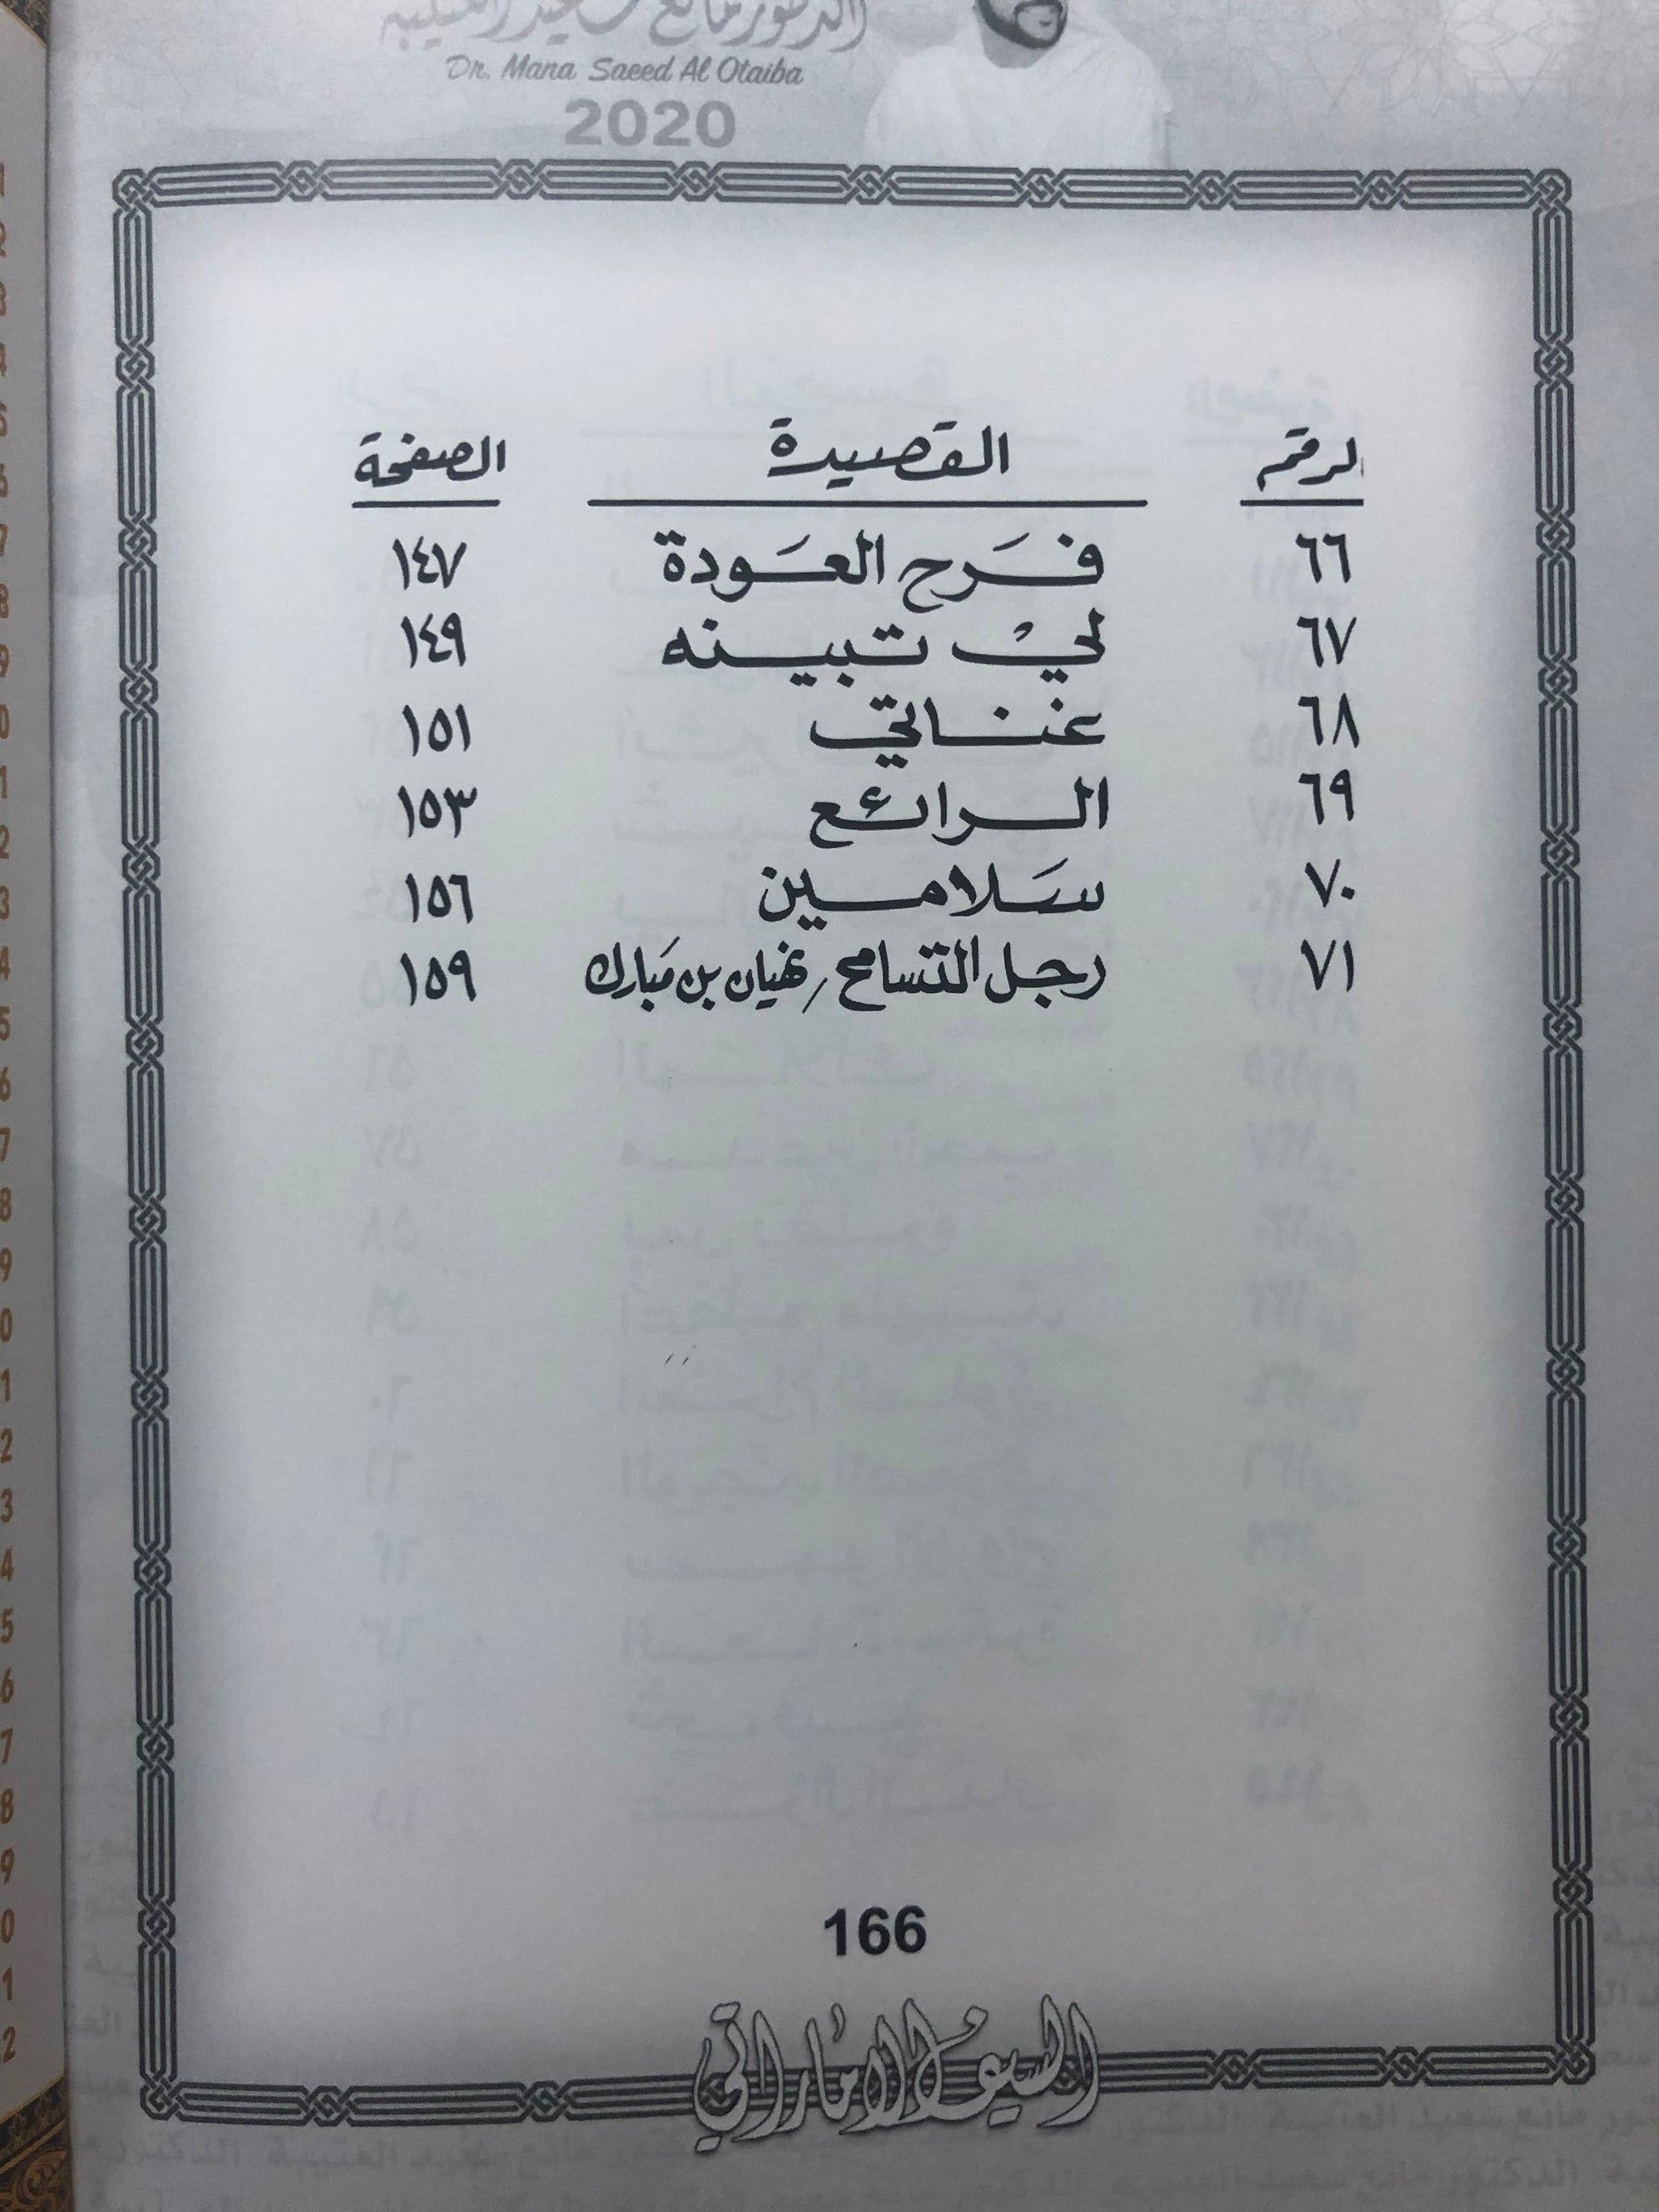 الدكتور مانع سعيد العتيبة
Dr. Mana Saeed Al Otaiba
2020
الرقم القصيدة الصفحة
٦٦ فَرَح العَودة ١٤٧
٦٧ ليْ تبينه ١٤٩
٦٨ عناتي ١٥١
٦٩ الرائع ١٥٣
٧٠ سَلامين ١٥٦
٧١ رجل التسامح / نهيان بن مَبارك ١٥٩
166